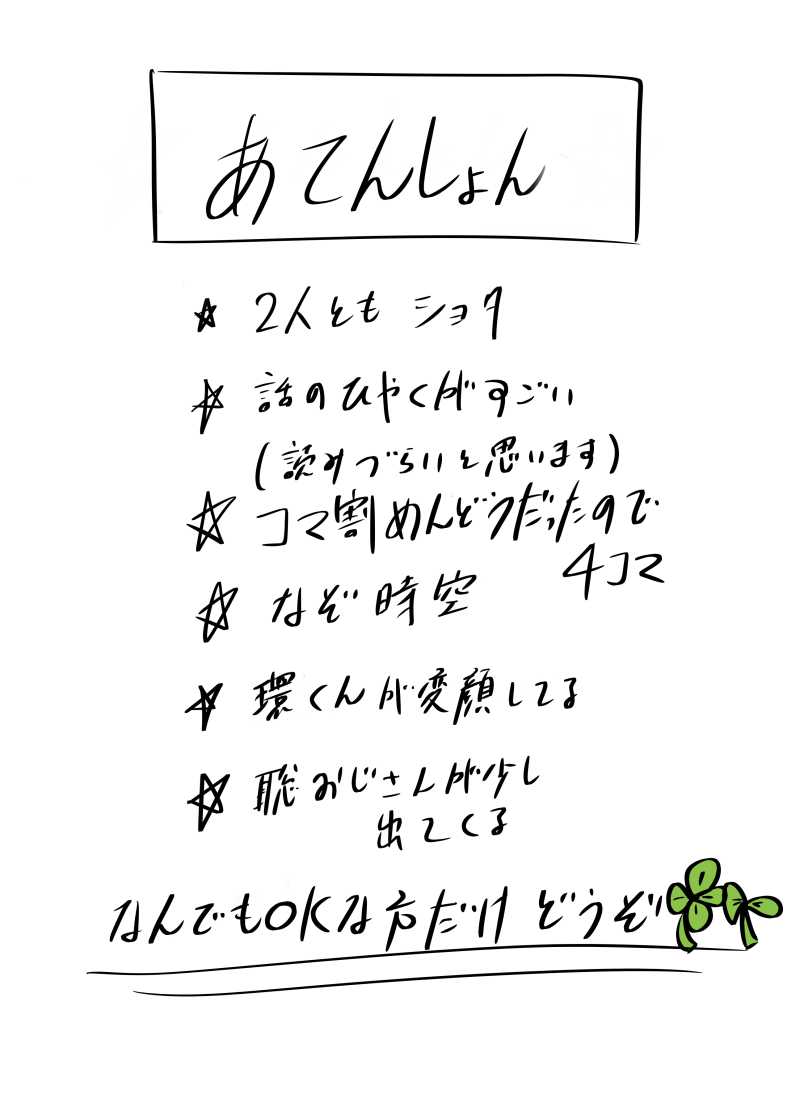 あてんしょん
☆ 2人とも ショタ
☆ 話のひやくがすごい
(読みづらいと思います)
☆ コマ割めんどうだったので
4コマ
☆ なぞ時空
☆ 環くんが変顔してる
☆ 聡おじさんが少し
出てくる
なんでもOKな方だけ どうぞ